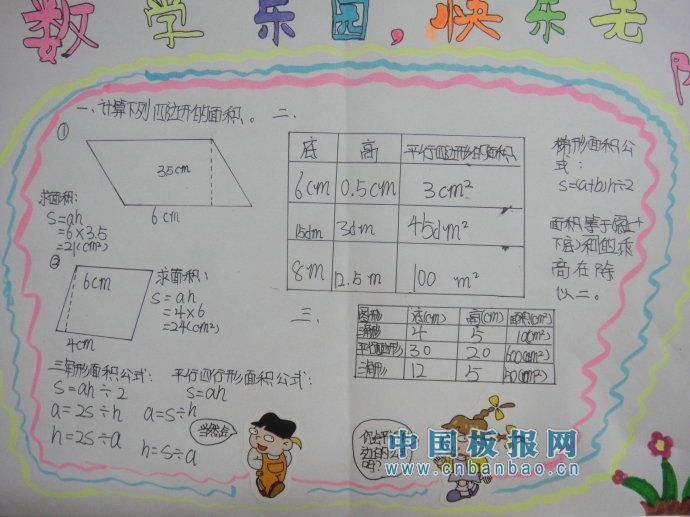 数学乐园,快乐无
一、计算下列四边形的面积。
①
3.5cm
6cm
求面积:
S=ah
=6×3.5
=21(cm²)
②
6cm
4cm
求面积:
S=ah
=4×6
=24(cm²)
三角形面积公式:
S=ah÷2
a=2S÷h
h=2S÷a
平行四行形面积公式:
S=ah
a=S÷h
h=S÷a
二、
底 高 平行四边形的面积
6cm 0.5cm 3cm²
15dm 3dm 45dm²
8m 12.5m 100 m²
三、
图形 底(cm) 高(cm) 面积(cm²)
三角形 4 5 10(cm²)
平行四边形 30 20 600(cm²)
三角形 12 5
梯形面积公
式:
S=(a+b)h÷2
面积等于(上+
下底)和的乘
高在除
以二。
当然会
中国板报网
www.cnbanbao.cn